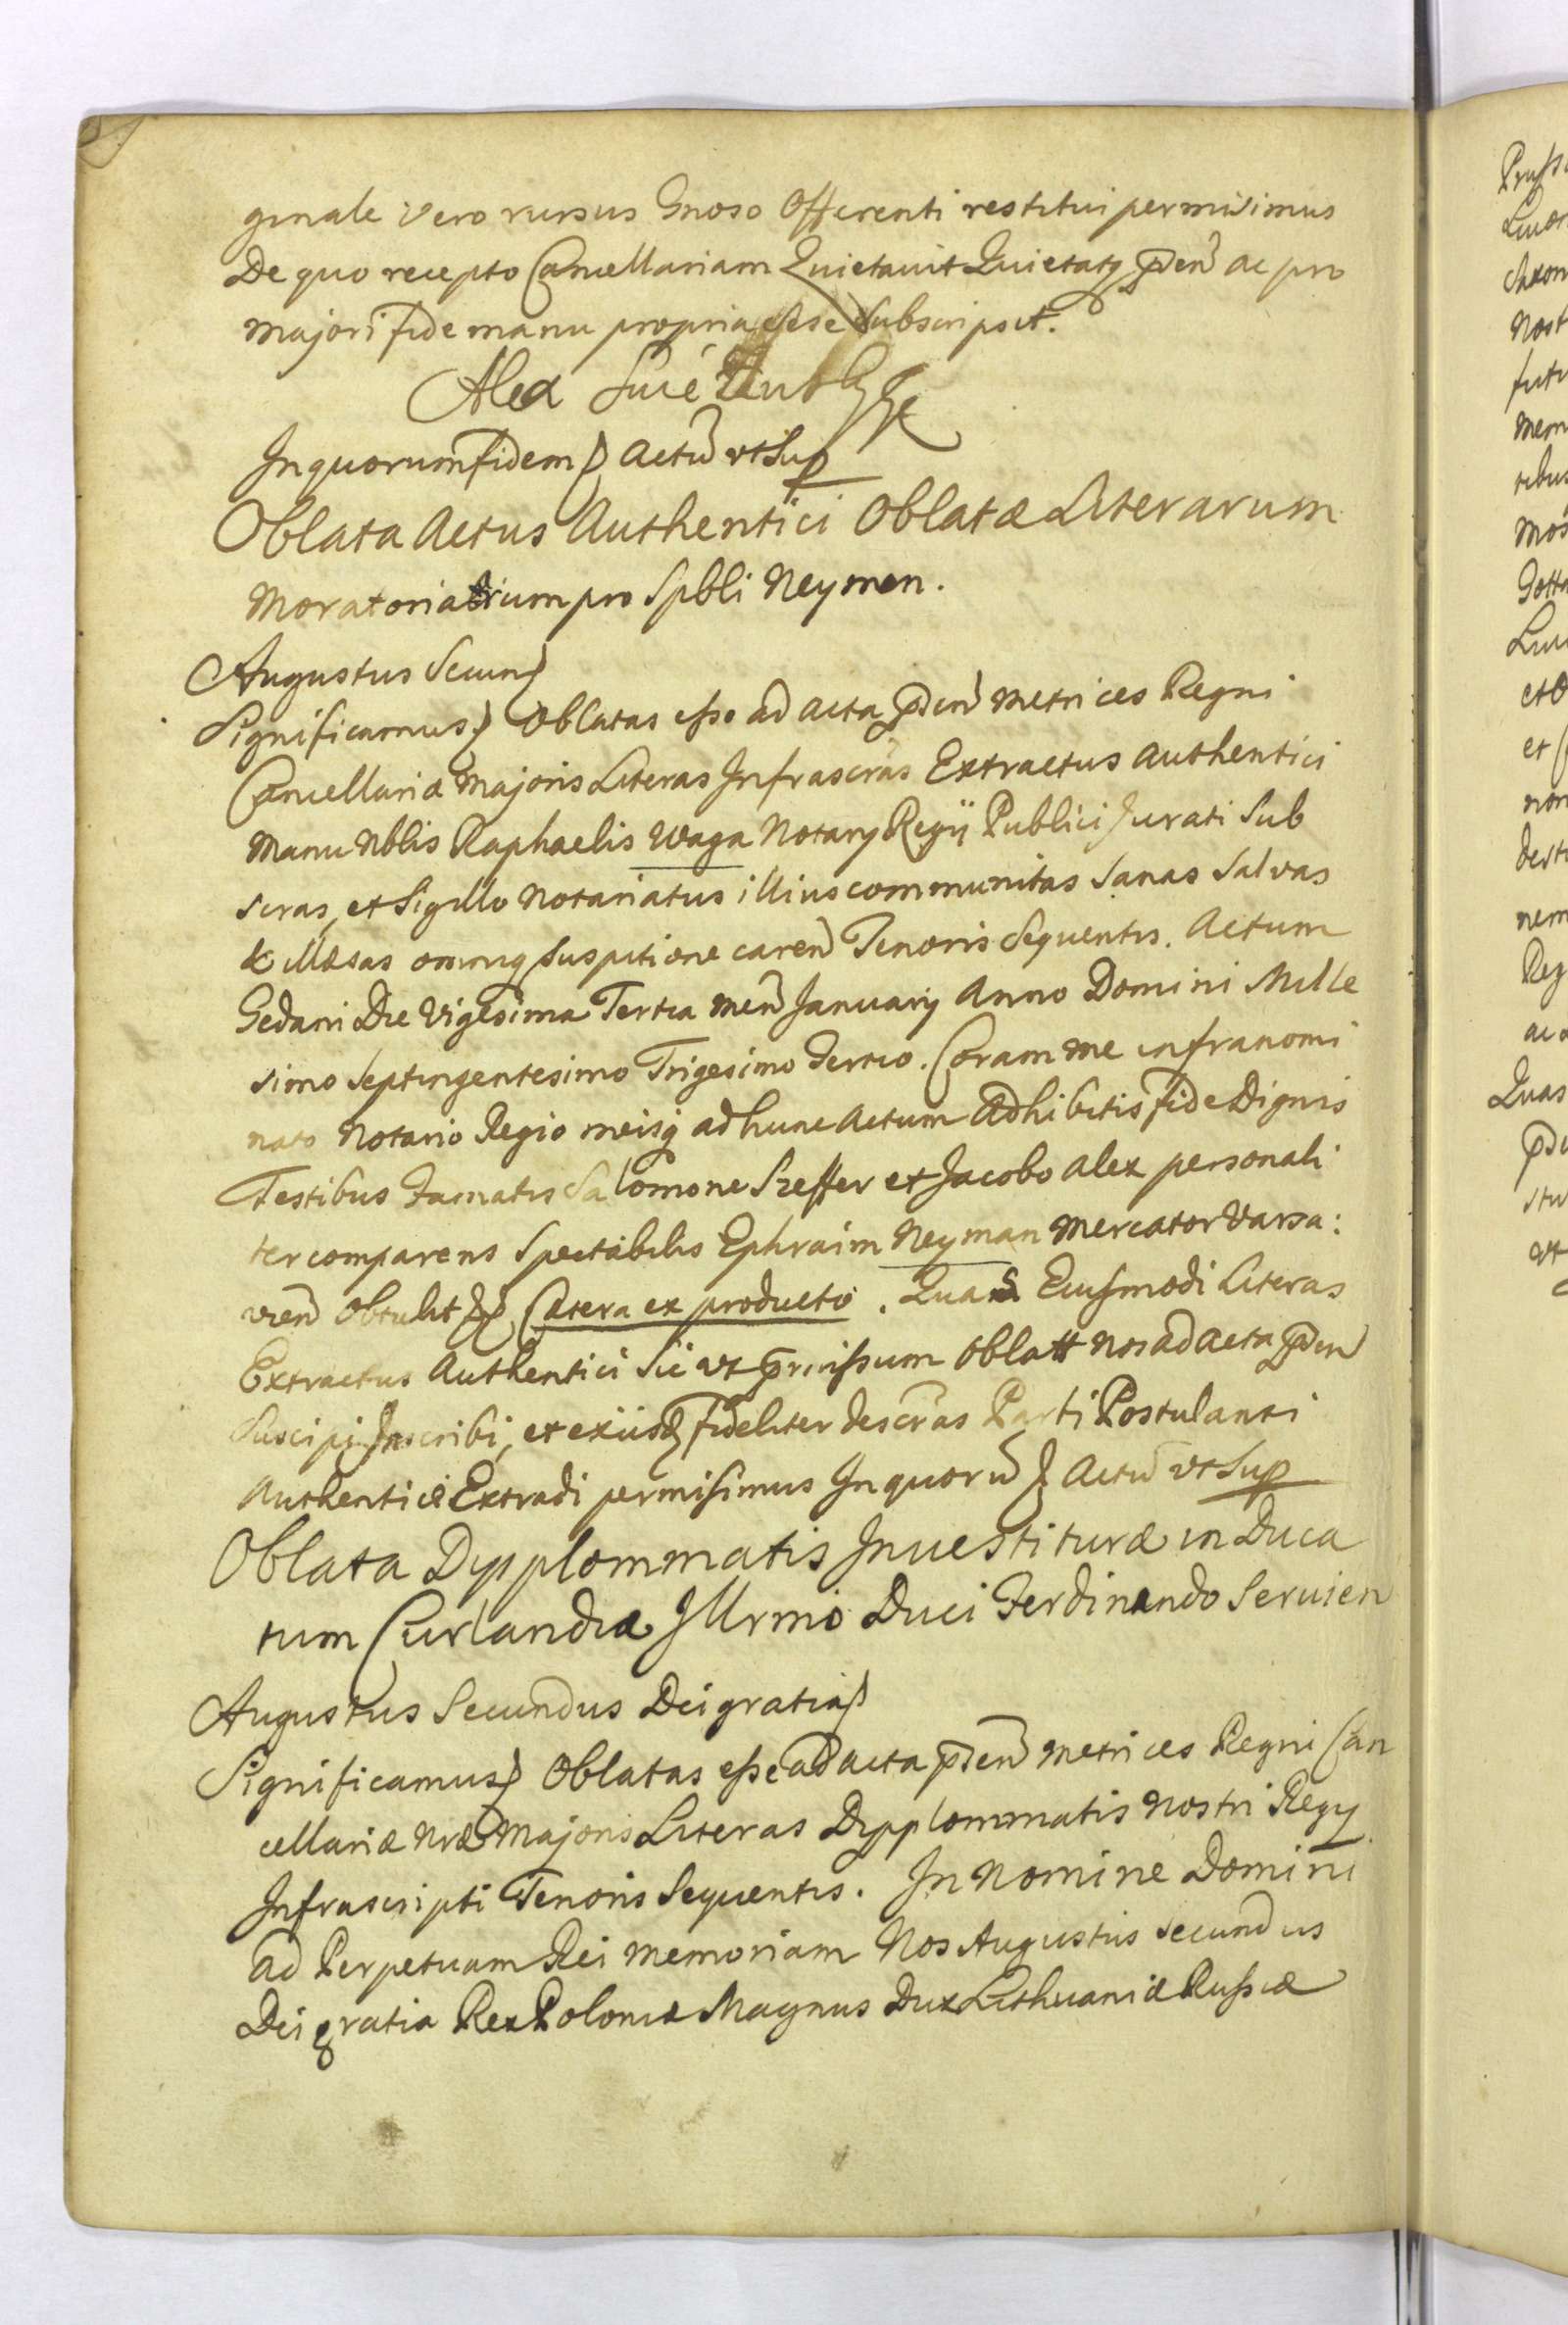 ginale vero rursus Gnoso Offerenti restitui permisimus
De quo recepto Cancellariam Quietavit Quietatq pñen ac pro
majori fide manu propria sese subscripsit.
Alex
In quorum fidem Actũ vt Sup
Oblata Actus Authentici Oblatæ Literarum
Moratoriarium pro Spbli Neyman.
Augustus Secund
Significamus Oblatas esse ad acta pñen Metrices Regni
Cancellariæ Majoris Literas Infrascras Extractus Authentici
Manu Nblis Raphaelis Waga Notarij Regij Publici Jurati Sub
scras, et Sigillo Notariatus illius communitas sanas salvas
& illæsas omniq suspitione caren Tenoris Sequentis. Actum
Gedani Die Vigesima Tertia Men Januarij Anno Domini Mille
simo Septingentesimo Trigesimo Tertio. Coram me infranomi
nato Notario Regio meisq ad hunc Actum Adhibitis fide Dignis
Testibus Famatis Salomone Szeffer et Jacobo Alex personali
ter comparens Spectabilis Ephraim Neyman Mercator Varsa:
vien Obtulit Cætera ex producto. Quas Eiusmodi Literas
Extractus Authentici sic vt præmissum oblatt nos ad Acta pñen
Suscipi Inscribi, et exiisd fideliter descras Parti Postulanti
Authenticè Extradi permisimus In quorũ Actũ vt Sup
Oblata Dypplommatis Inuestituræ in Duca
tum Curlandiæ Illrmo Duci Ferdinando Seruien
Augustus Secundus Dei gratia
Significamus Oblatas esse ad acta pñen Metrices Regni Can
cellariæ Nræ Majoris Literas Dypplommatis Nostri Regij
Infrascripti Tenoris Sequentis. In Nomine Domini
ad Perpetuam Rei memoriam Nos Augustus Secundus
Dei gratia Rex Poloniæ Magnus Dux Lithuaniæ Russiæ